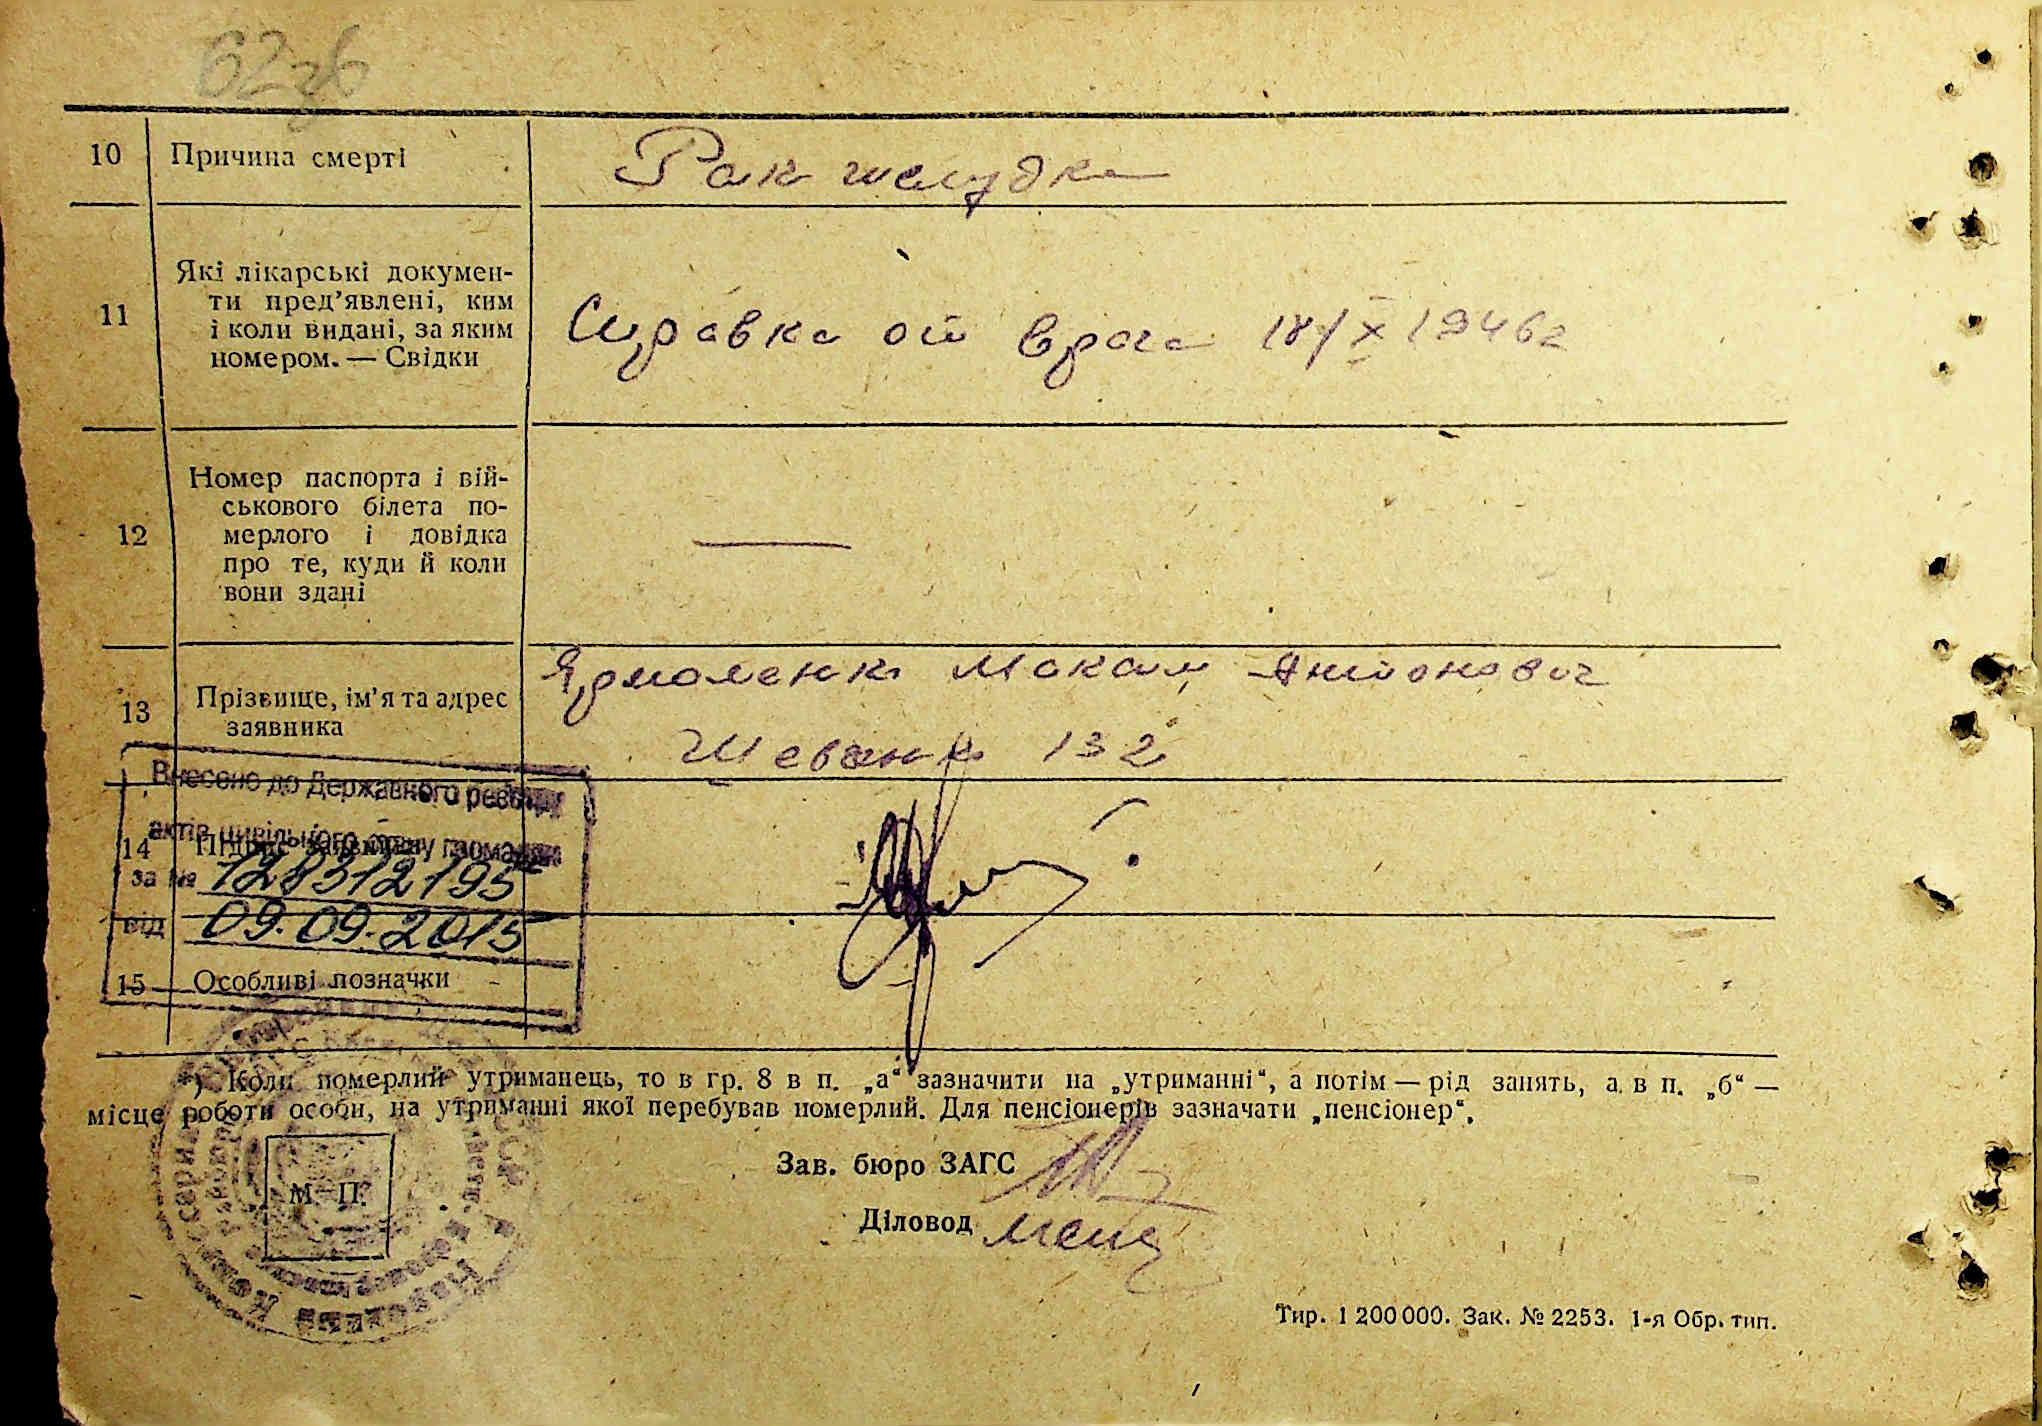 62зв
10 Причина смерті Рак желудка
11 Які лікарські докумен-
ти пред’явлені, ким
і коли видані, за яким
номером. — Свідки
Справка от врача 18/X 1946г
12 Номер паспорта і вій-
ськового білета по-
мерлого і довідка
про те, куди й коли
вони здані
—
13 Прізвище, ім’я та адрес
заявника
Ярмоленко Максим Антонович
132
Внесено до Державного реєстру
актів цивільного стану громадян
14 Підпис заявника
за № 128312195
від 09.09.2015
15 Особливі позначки
*) Коли померлий утриманець, то в гр. 8 в п. „а“ зазначити на „утриманні“, а потім — рід занять, а в п. „б“ —
місце роботи особи, на утриманні якої перебував померлий. Для пенсіонерів зазначати „пенсіонер“.
Зав. бюро ЗАГС
М. П.
Діловод
Тир. 1 200 000. Зак. № 2253. 1-я Обр. тип.